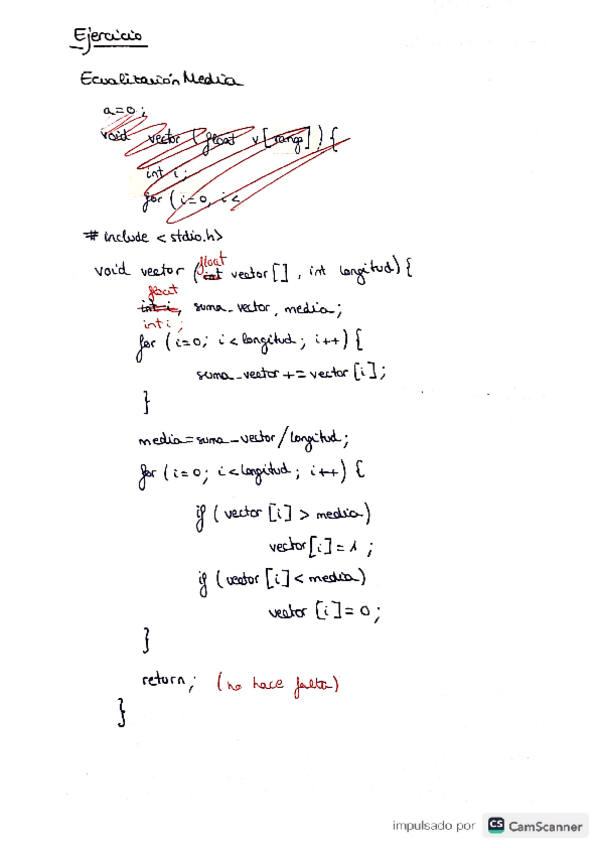 Ejercicio
Ecualización Media
a=0;
void vector (float v[range]) {
int i;
for (i=0, i<
# include <stdio.h>
float
void vector (int vector[], int longitud) {
float
int i, suma_vector, media;
int i;
for (i=0; i<longitud; i++) {
suma_vector += vector[i];
}
media=suma_vector/longitud;
for (i=0; i<longitud; i++) {
if (vector[i] > media)
vector[i]=1;
if (vector[i]< media)
vector [i]=0;
}
return; (no hace falta)
}
impulsado por CS CamScanner